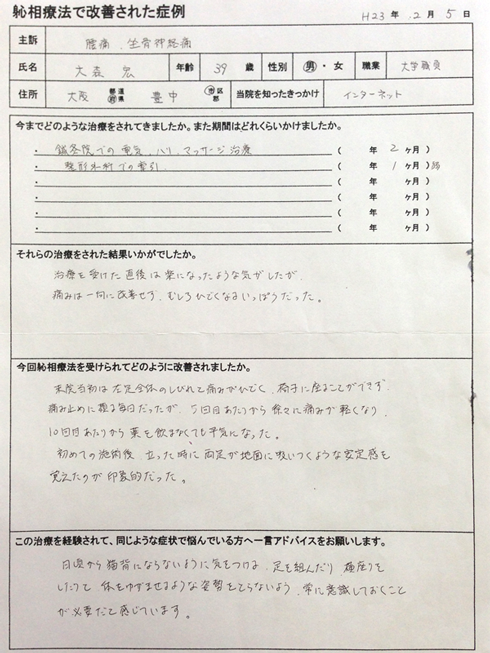 恥相療法で改善された症例
H23年 2月 5日
主訴 腰痛、坐骨神経痛
氏名 大森 宏 年齢 39 歳 性別 男・女 職業 大学職員
住所 大阪 都道府県 豊中 市区郡 当院を知ったきっかけ インターネット
今までどのような治療をされてきましたか。また期間はどれくらいかけましたか。
・鍼灸院での電気、ハリ、マッサージ治療 ( 年 2 ヶ月)
・整形外科での牽引 ( 年 1 ヶ月)弱
・ ( 年 ヶ月)
・ ( 年 ヶ月)
・ ( 年 ヶ月)
それらの治療をされた結果いかがでしたか。
治療を受けた直後は楽になったような気がしたが、
痛みは一向に改善せず、むしろひどくなるいっぽうだった。
今回恥相療法を受けられてどのように改善されましたか。
来院当初は左足全体のしびれて痛みがひどく、椅子に座ることができず、
痛み止めに頼る毎日だったが、5回目あたりから徐々に痛みが軽くなり、
10回目あたりから薬を飲まなくても平気になった。
初めての施術後、立った時に両足が地面に吸いつくような安定感を
覚えたのが印象的だった。
この治療を経験されて、同じような症状で悩んでいる方へ一言アドバイスをお願いします。
日頃から猫背にならないように気をつける、足を組んだり 横座りを
したりして 体をゆがませるような姿勢をとらないよう、常に意識しておくこと
が必要だと感じています。